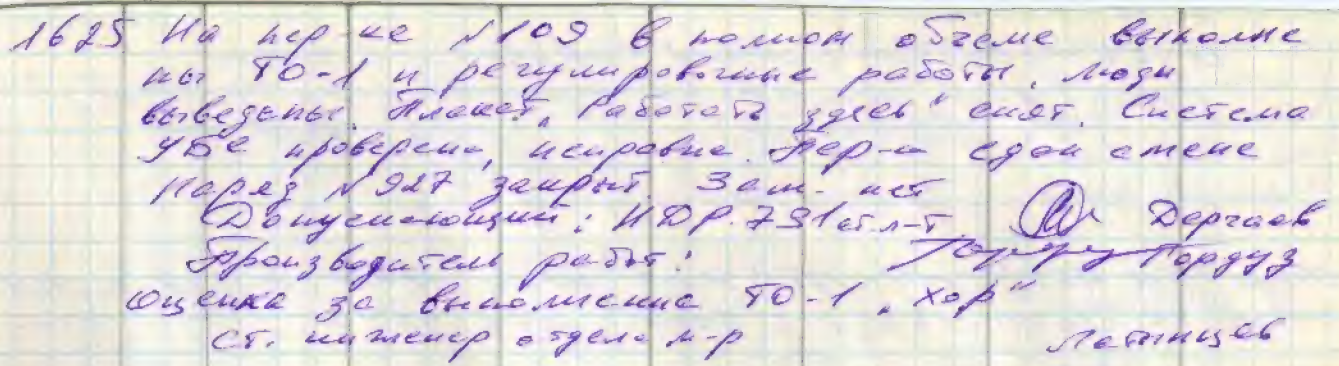 1625 На пер-ке №109 в полном объеме выполне
ны ТО-1 и регулировочные работы, люди
выведены. Плакат „Работать здесь" снят. Система
УБС проверена, исправна. Пер-к сдан смене
Наряд №927 закрыт. Зам- нет
Допускающий: НДР-791 ст.л-т Дергаев
Производитель работ: Гордуз
Оценка за выполнение ТО-1 „хор"
Ст. инженер отдела м-р Латынцев